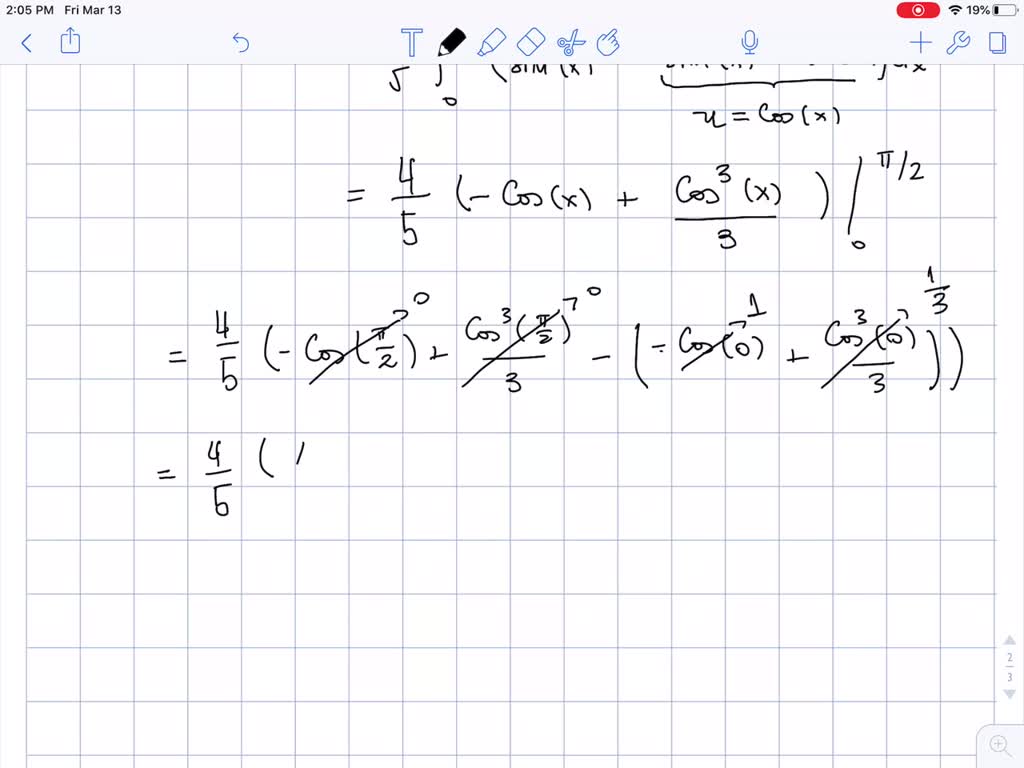 2:05 PM Fri Mar 13 19%
T
5 ∫ 0 (sin(x)
u = Cos(x)
= 4/5 (- Cos(x) + Cos^3(x)/3) | 0 π/2
= 4/5 (- Cos(π/2) → 0 + Cos^3(π/2)/3 → 0 - (- Cos(0) → 1 + Cos^3(0)/3 → 1/3))
= 4/5 (1
2/3